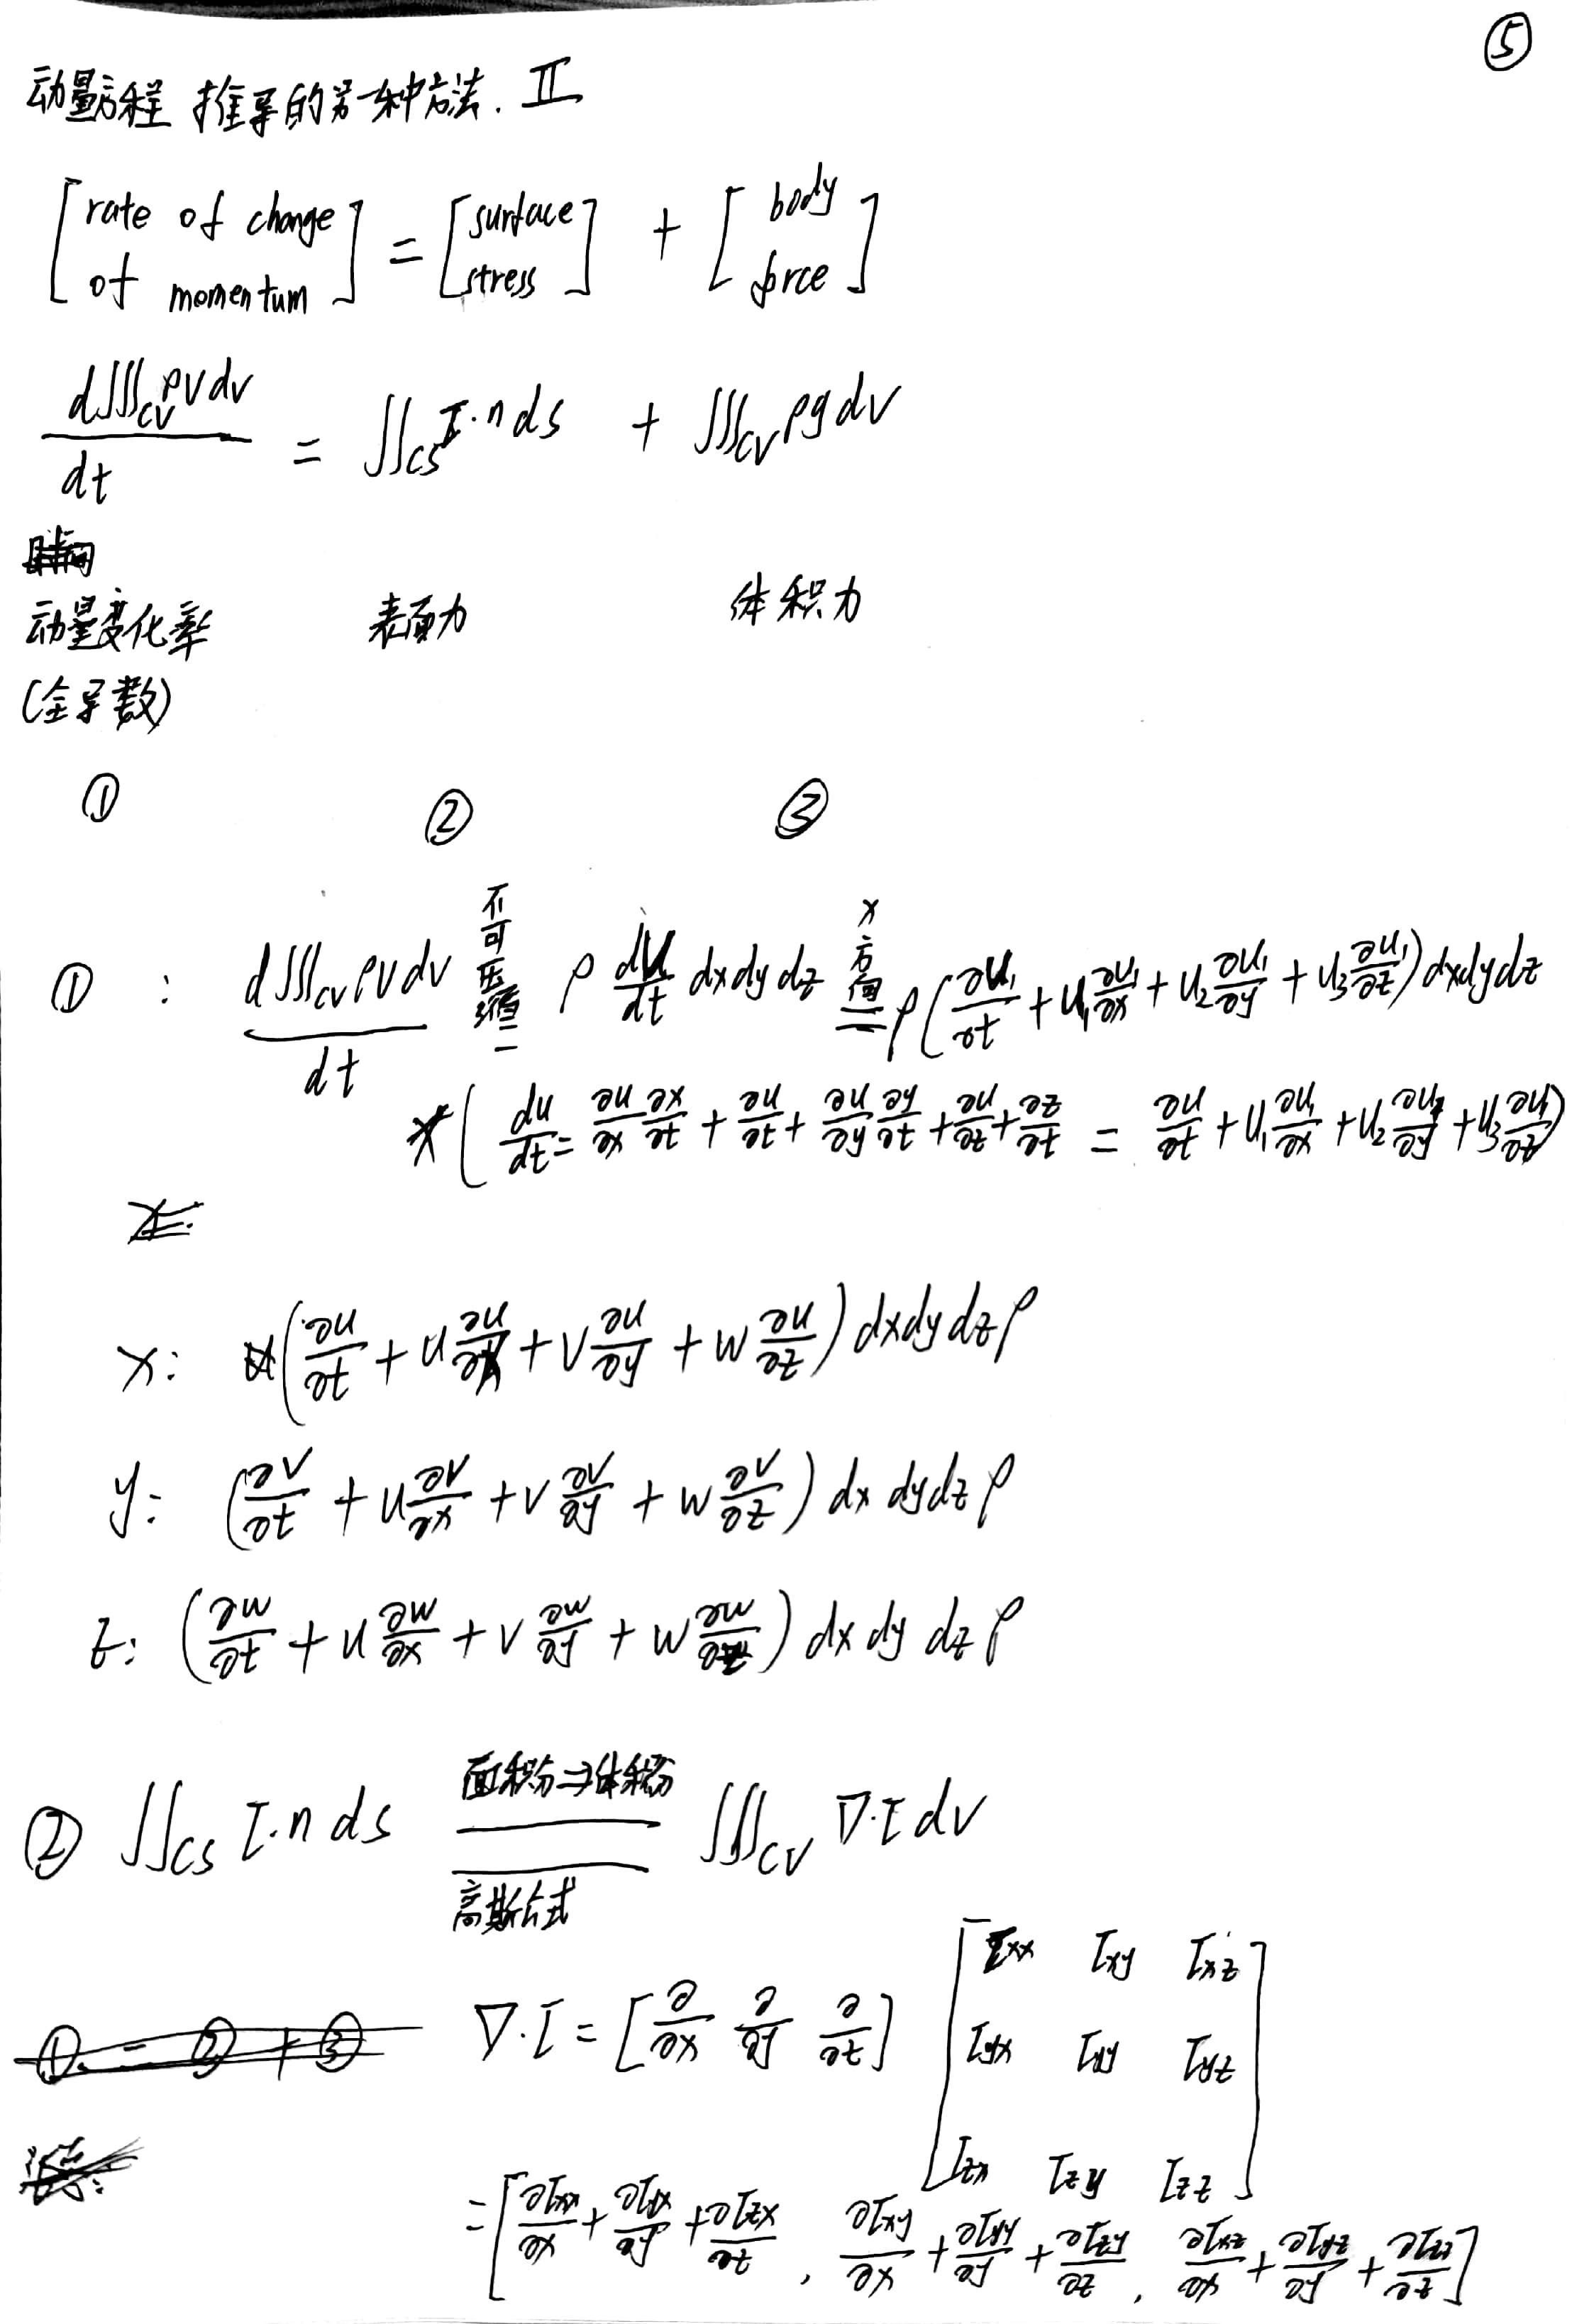 ⑤
动量方程 推导的另一种方法. II
[rate of change of momentum] = [surface stress] + [body force]
d∭_CV ρV dv / dt = ∬_CS I·n ds + ∭_CV ρg dv
动量变化率 表面力 体积力
(全导数)
① ② ③
① : d∭_CV ρV dv / dt =(不可压缩) ρ dU/dt dxdydz =(x方向) ρ(∂U₁/∂t + U₁∂U₁/∂x + U₂∂U₁/∂y + U₃∂U₁/∂z) dxdydz
*( du/dt = ∂u/∂x ∂x/∂t + ∂u/∂t + ∂u/∂y ∂y/∂t + ∂u/∂z + ∂z/∂t = ∂u/∂t + U₁∂U₁/∂x + U₂∂U₁/∂y + U₃∂U₁/∂z )
x: (∂u/∂t + u∂u/∂x + v∂u/∂y + w∂u/∂z) dxdydz ρ
y: (∂v/∂t + u∂v/∂x + v∂v/∂y + w∂v/∂z) dx dydz ρ
z: (∂w/∂t + u∂w/∂x + v∂w/∂y + w∂w/∂z) dx dy dz ρ
② ∬_CS I·n ds =(面积分⇒体积分 高斯公式) ∭_CV ∇·I dv
① = ② + ③
∇·I = [∂/∂x ∂/∂y ∂/∂z] [Ixx Ixy Ixz
Iyx Iyy Iyz
Izx Izy Izz]
= [∂Ixx/∂x + ∂Iyx/∂y + ∂Izx/∂z , ∂Ixy/∂x + ∂Iyy/∂y + ∂Izy/∂z , ∂Ixz/∂x + ∂Iyz/∂y + ∂Izz/∂z]